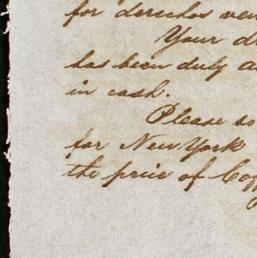 for derechos
Your
has been duly
in cash.
Please
for New York
the price of